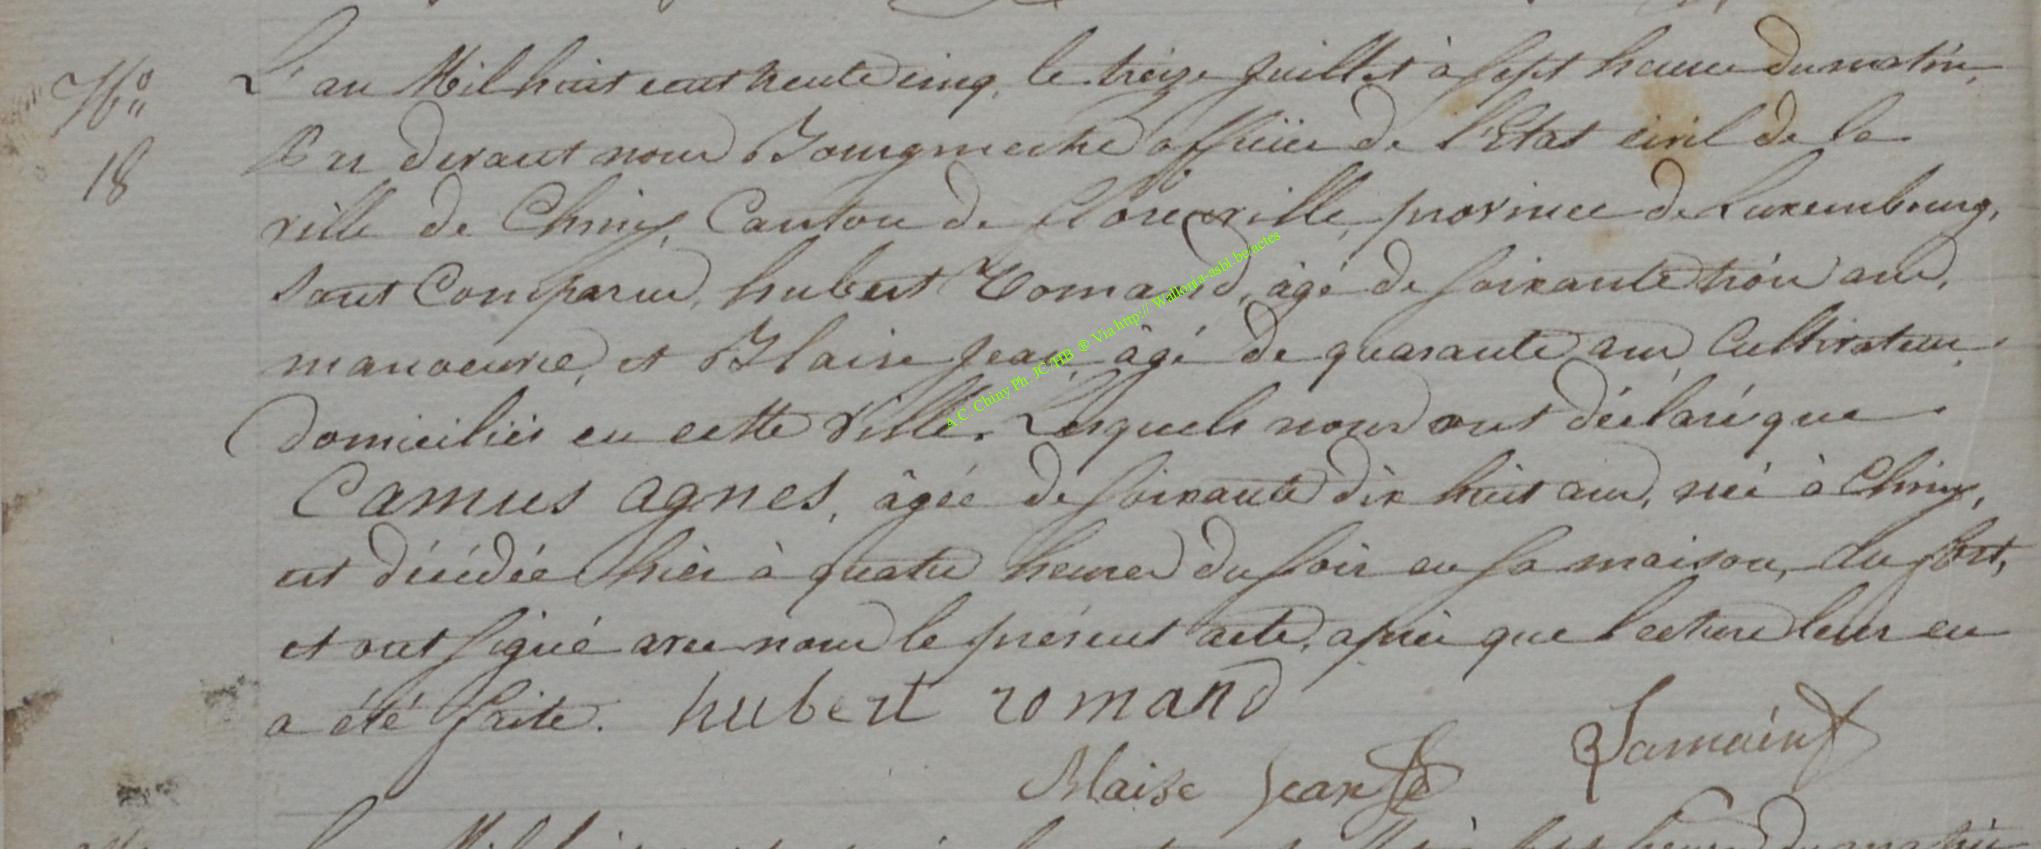 N°
18
L'an Mil huit cent trente cinq, le treize Juillet à sept heures du matin,
Par devant nous Bourgmestre officier de l'Etat civil de la
ville de Chiny, Canton de florenville, province de Luxembourg,
sont Comparus, hubert Romand, âgé de soixante trois ans,
manoeuvre, et Blaise Jean, âgé de quarante ans, Cultivateur,
domiciliés en cette ville. Lesquels nous ont déclaré que
Camus Agnes, âgée de soixante dix huit ans, née à Chiny,
est décédée hier à quatre heures du soir en sa maison, du fort,
et ont signé avec nous le présent acte, après que lecture leur en
a été faite. hubert romand
Blaise Jean
A.C. Chiny Ph. JC/HB ® Via http:// Wallonia-asbl.be/actes